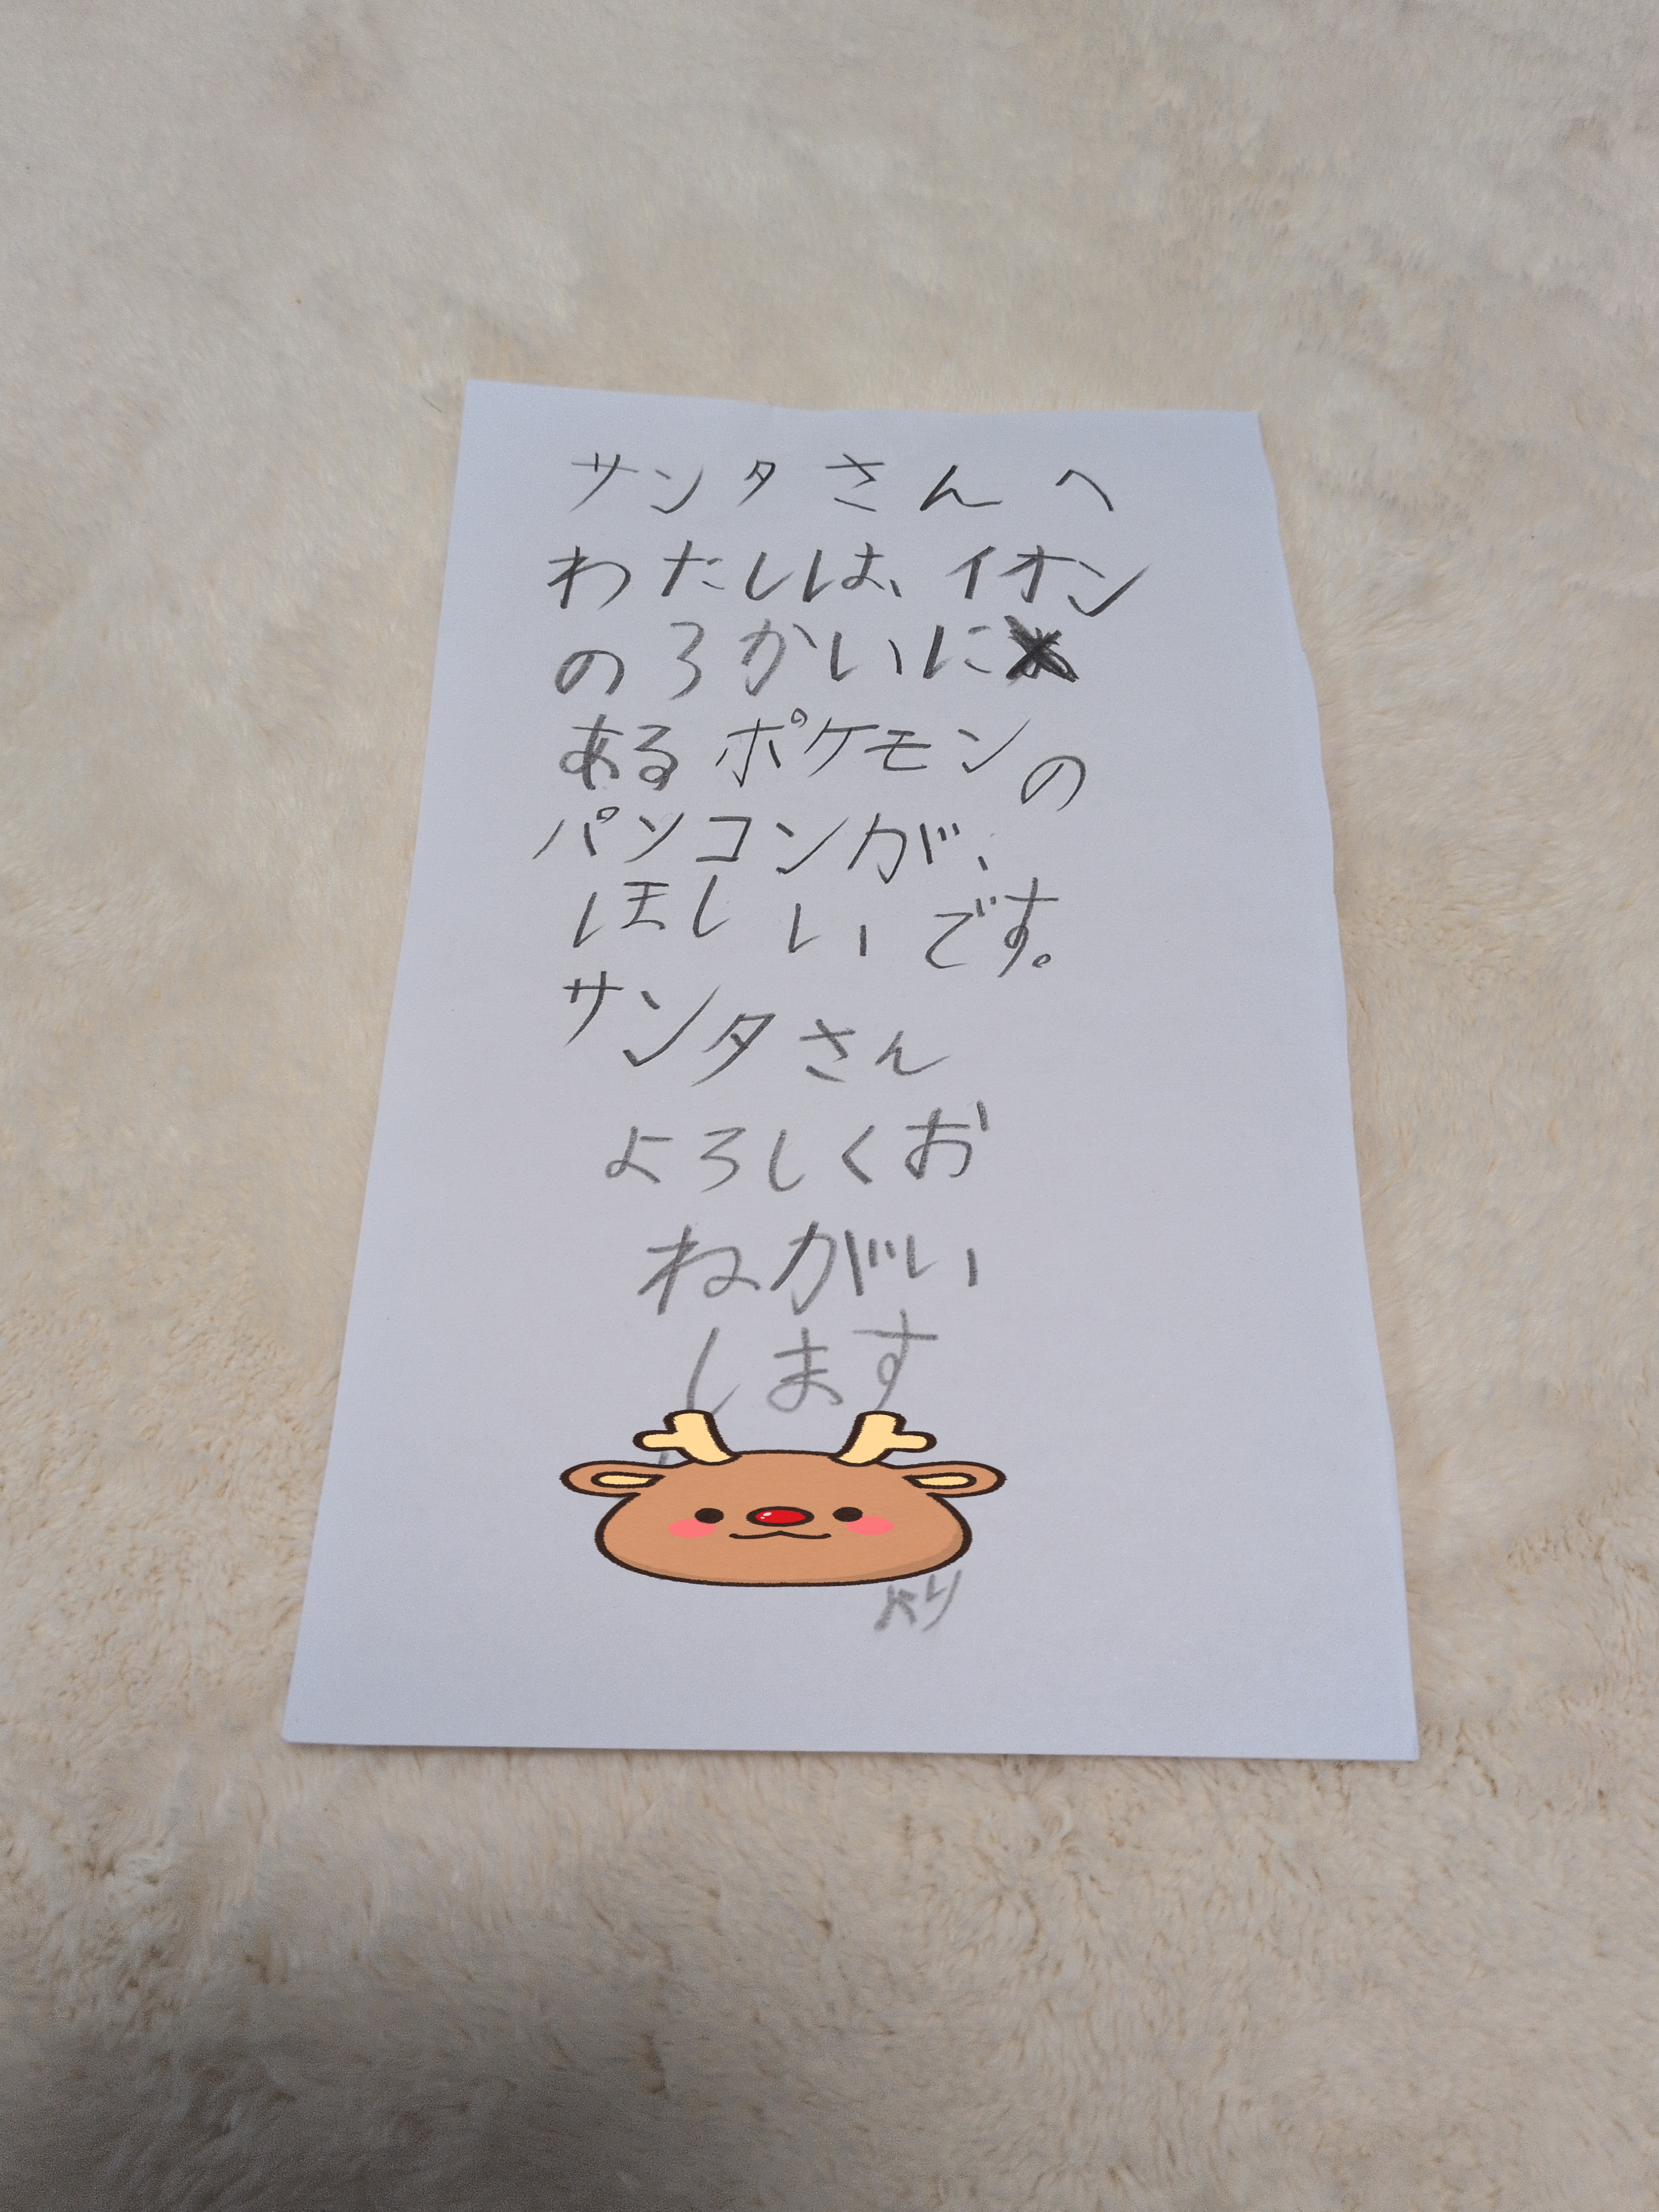 サンタさんへ
わたしは、イオン
の3かいに
あるポケモンの
パソコンが、
ほしいです。
サンタさん
よろしくお
ねがい
します
より